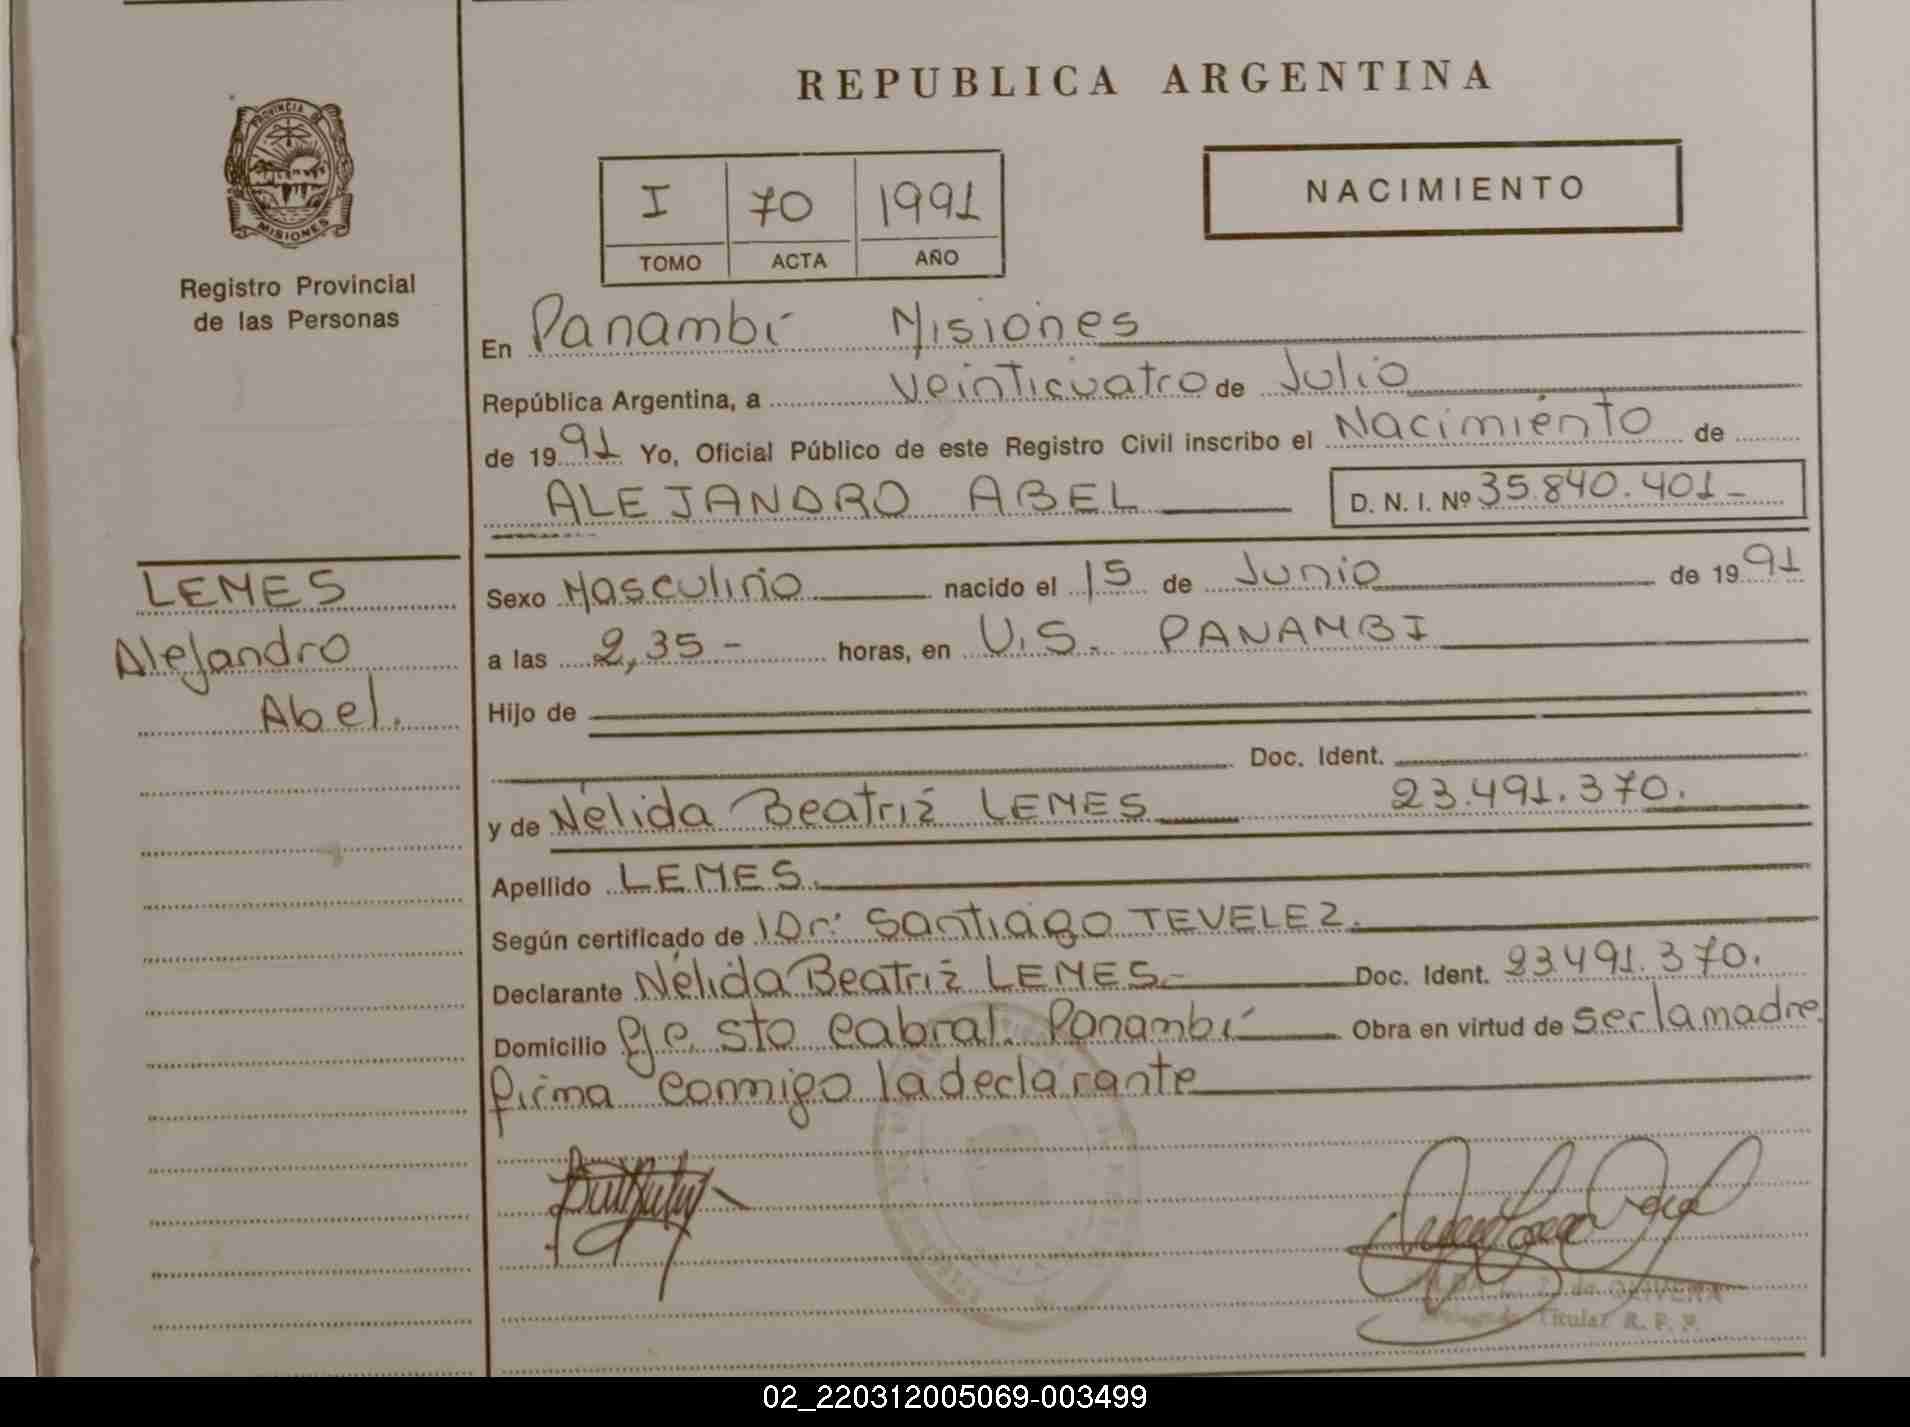 REPUBLICA ARGENTINA
PROVINCIA DE
MISIONES
Registro Provincial
de las Personas
I 70 1991
TOMO ACTA AÑO
NACIMIENTO
En Panambí Misiones
República Argentina, a veinticuatro de Julio
de 1991 Yo, Oficial Público de este Registro Civil inscribo el Nacimiento de
ALEJANDRO ABEL D. N. I. Nº 35.840.401-
LEMES
Alejandro
Abel.
Sexo Masculino nacido el 15 de Junio de 1991
a las 2,35- horas, en U.S. PANAMBI
Hijo de
Doc. Ident.
y de Nélida Beatriz LEMES 23.491.370.
Apellido LEMES.
Según certificado de Dr: Santiago TEVELEZ.
Declarante Nélida Beatriz LEMES.- Doc. Ident. 23.491.370.
Domicilio Pje. sto Cabral. Panambí Obra en virtud de ser la madre.
firma conmigo la declarante
de OLIVERA
Titular R. P. P.
02_220312005069-003499